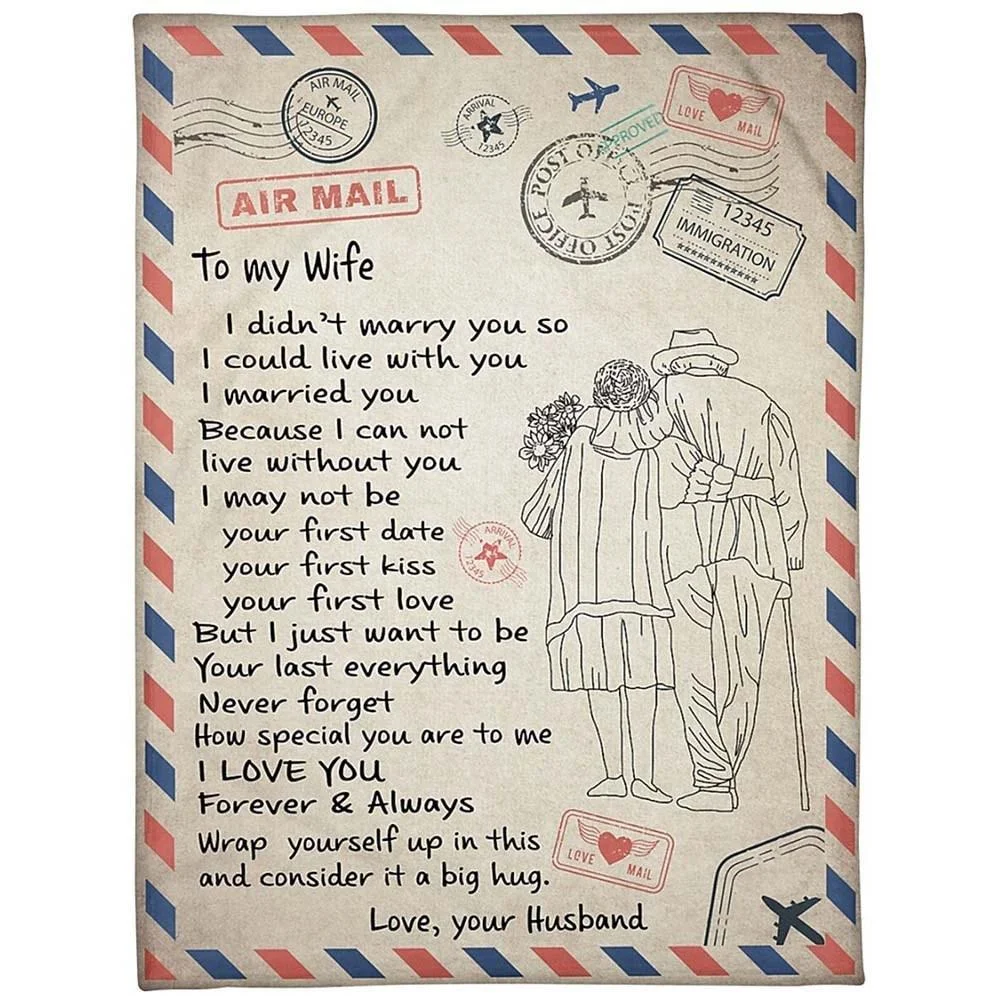 AIR MAIL
EUROPE
12345
ARRIVAL
12345
APPROVED
LOVE
MAIL
POST OFFICE
POST OFFICE
12345
IMMIGRATION
AIR MAIL
To my Wife
I didn't marry you so
I could live with you
I married you
Because I can not
live without you
I may not be
your first date
your first kiss
your first love
ARRIVAL
12345
But I just want to be
Your last everything
Never forget
How special you are to me
I LOVE YOU
Forever & Always
Wrap yourself up in this
and consider it a big hug.
LOVE
MAIL
Love, your Husband